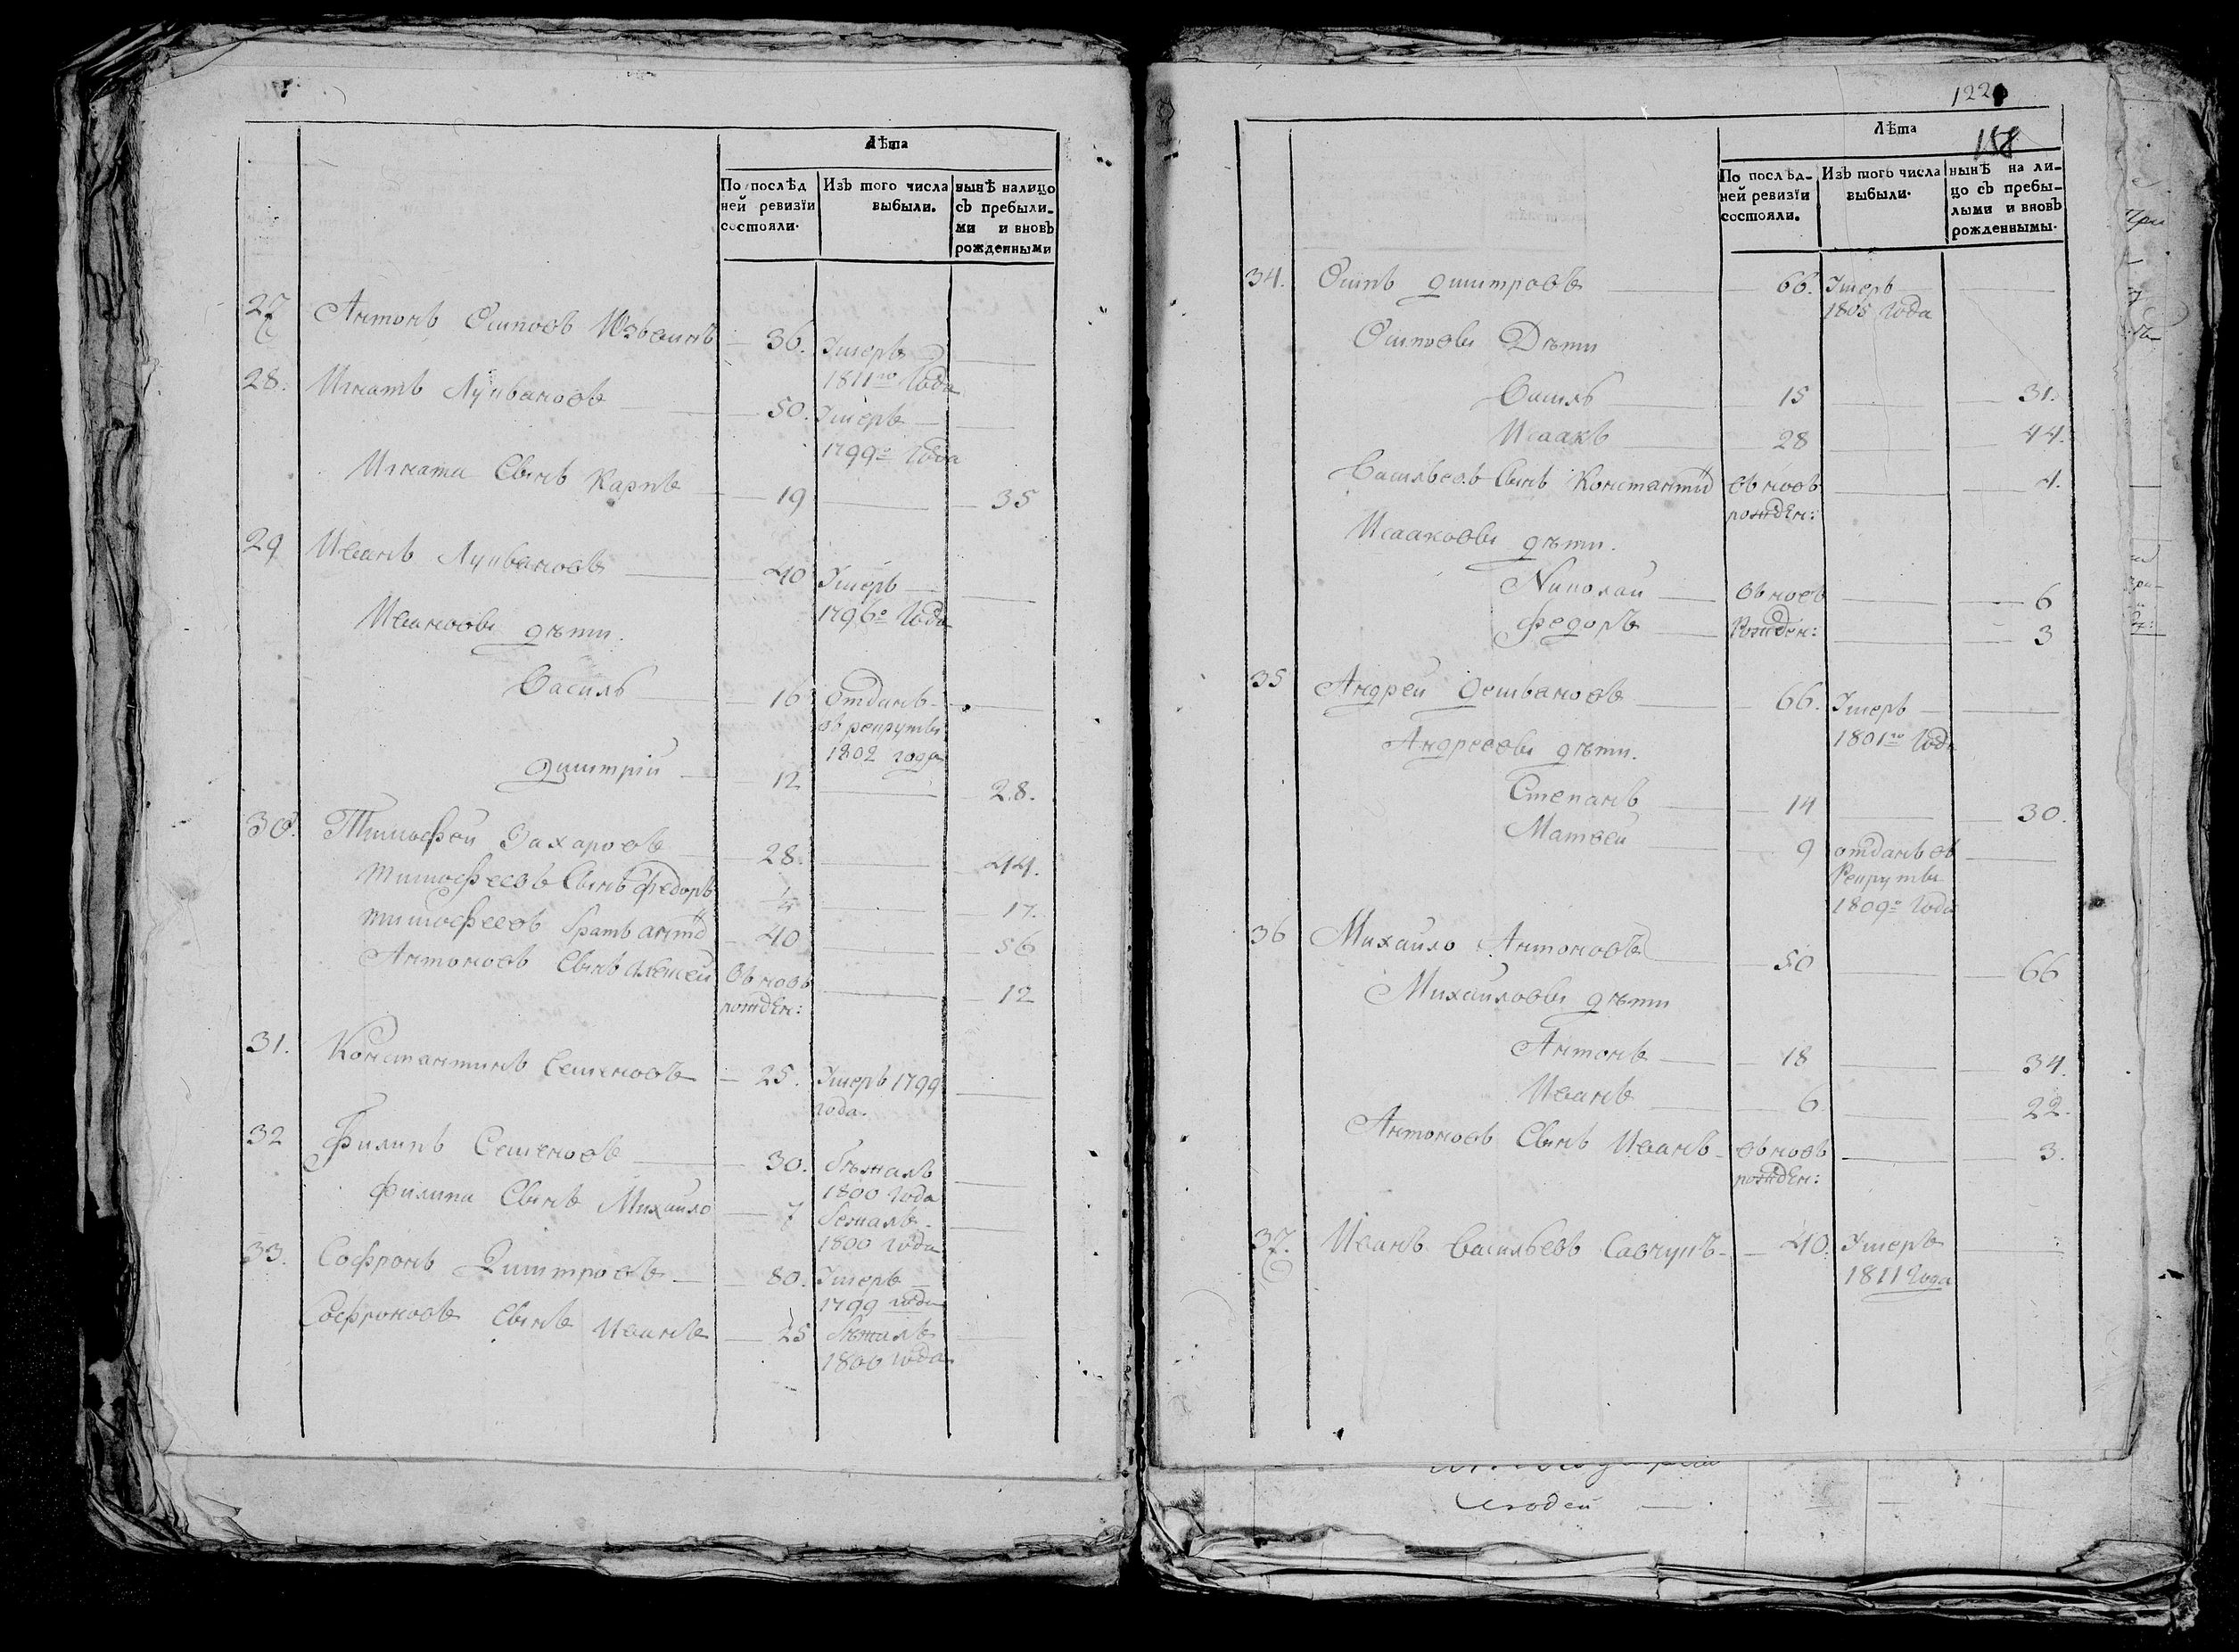 Лѣта
По послѣд
ней ревизїи
состояли.
Изъ того числа
выбыли.
нынѣ налицо
съ пребыли-
ми и вновь
рожденными
27 Антонъ Осиповъ 36. Умеръ
1811го Года
28. Игнатъ Лукьяновъ 50. Умеръ
1799го Года
Игната Сынъ Карпъ 19 35
29 Иванъ Лукьяновъ 40 Умеръ
1796го Года
Ивановы дѣти.
Василь 16 отданъ
въ рекруты
1802 года
Дмитрій 12 28.
30. Тимофей Захаровъ 28. 44.
Тимофеевъ Сынъ федоръ 17.
Тимофеевъ братъ анто 40 56
Антоновъ Сынъ алексей Вновь 12
рожден:
31. Константинъ Семеновъ 25. Умеръ 1799
года.
32 филипъ Семеновъ 30. бѣжалъ
1800 Года
филипа Сынъ Михайло 7 бежалъ
1800 Года
33. Софронъ Дмитровъ 80. Умеръ
1799 года
Софроновъ Сынъ Иванъ 25 бѣжалъ
1800 года
122
158
Лѣта
По послѣд-
ней ревизїи
состояли.
Изъ того числа
выбыли.
нынѣ на ли-
цо съ пребы-
лыми и вновь
рожденнымы.
34. Осипъ Дмитровъ 66. Умеръ
1805 Года
Осиповы Дѣти
Василь 15 31.
Исаакъ 28 44.
Васильевъ Сынъ Константи вновь 4.
рожден:
Исааковы дѣти.
Николай вновь 6
федоръ Рожден: 3
35 Андрей Демьяновъ 66. Умеръ
1801го Года
Андреевы дѣти.
Степанъ 14 30.
Матвей 9 отданъ въ
Рекруты
1809го Года
36 Михайло Антоновъ 50 66
Михайловы дѣти
Антонъ 18 34.
Иванъ 6 22.
Антоновъ Сынъ Иванъ вновь 3.
рожден:
37. Иванъ Васильевъ Савчукъ 40. Умеръ
1811 Года
людей